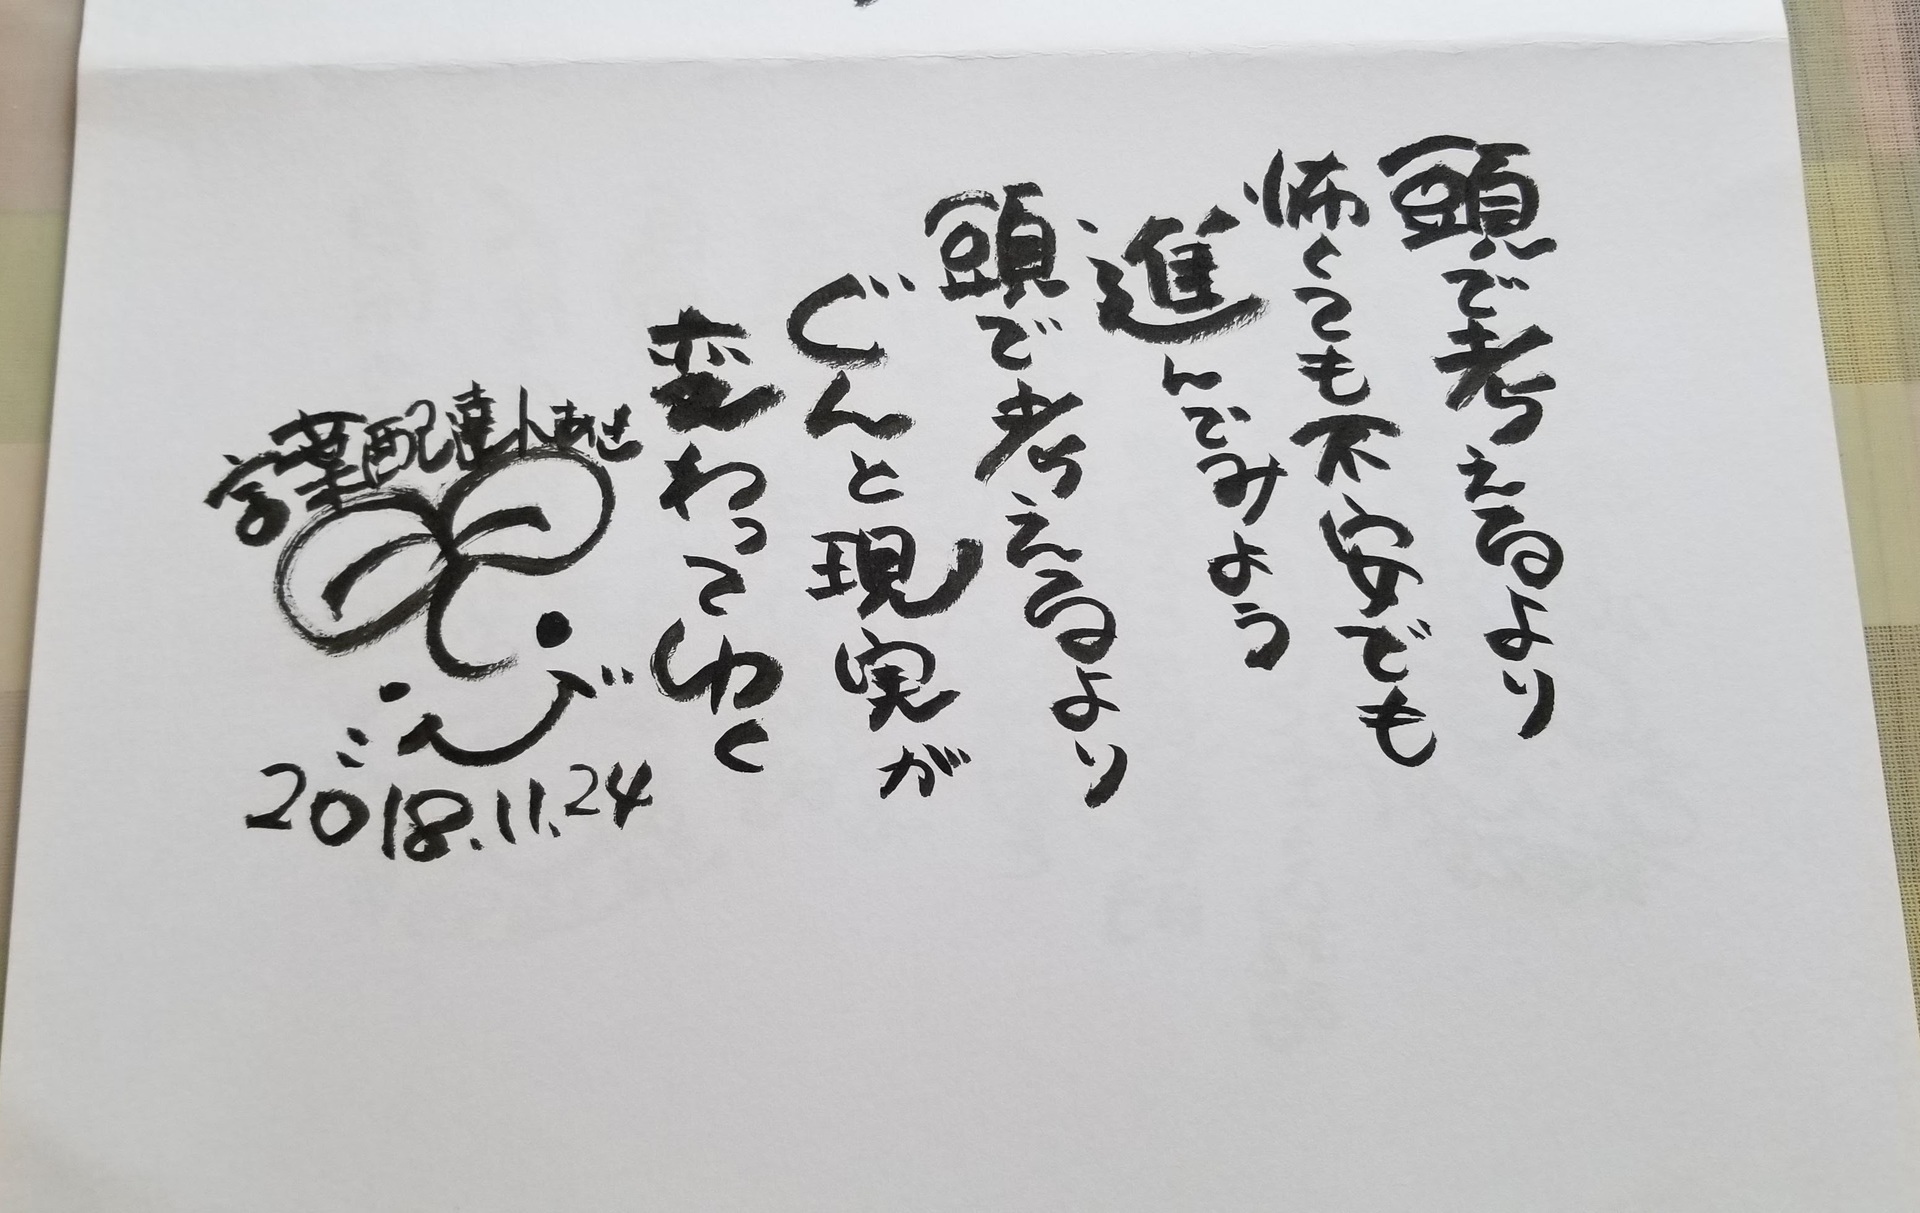 頭で考えるより
怖くても不安でも
進んでみよう
頭で考えるより
ぐんと現実が
変わってゆく
言葉配達人あせ
2018.11.24